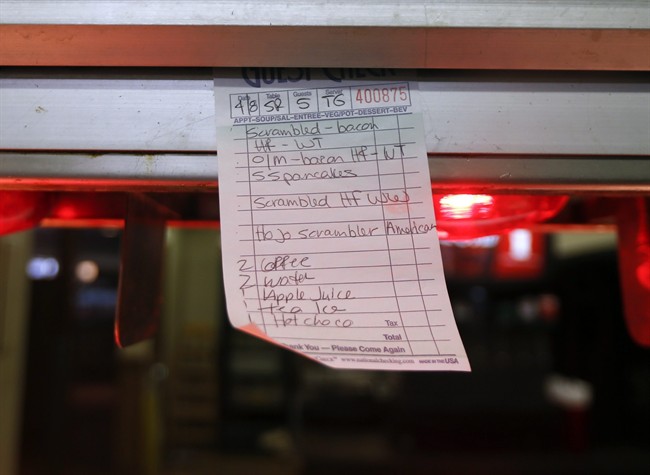 GUEST CHECK
Date Table Guests Server
4/8 52 5 TG 400875
APPT-SOUP/SAL-ENTREE-VEG/POT-DESSERT-BEV
Scrambled-bacon
HF - WT
Olm-bacon HF-WT
5 Spancakes
Scrambled Hf
Hojo scrambler American
2 Coffee
2 water
1 Apple Juice
1 tea Ice
1 Hot choco Tax
Total
Thank You — Please Come Again
www.nationalchecking.com MADE IN THE USA